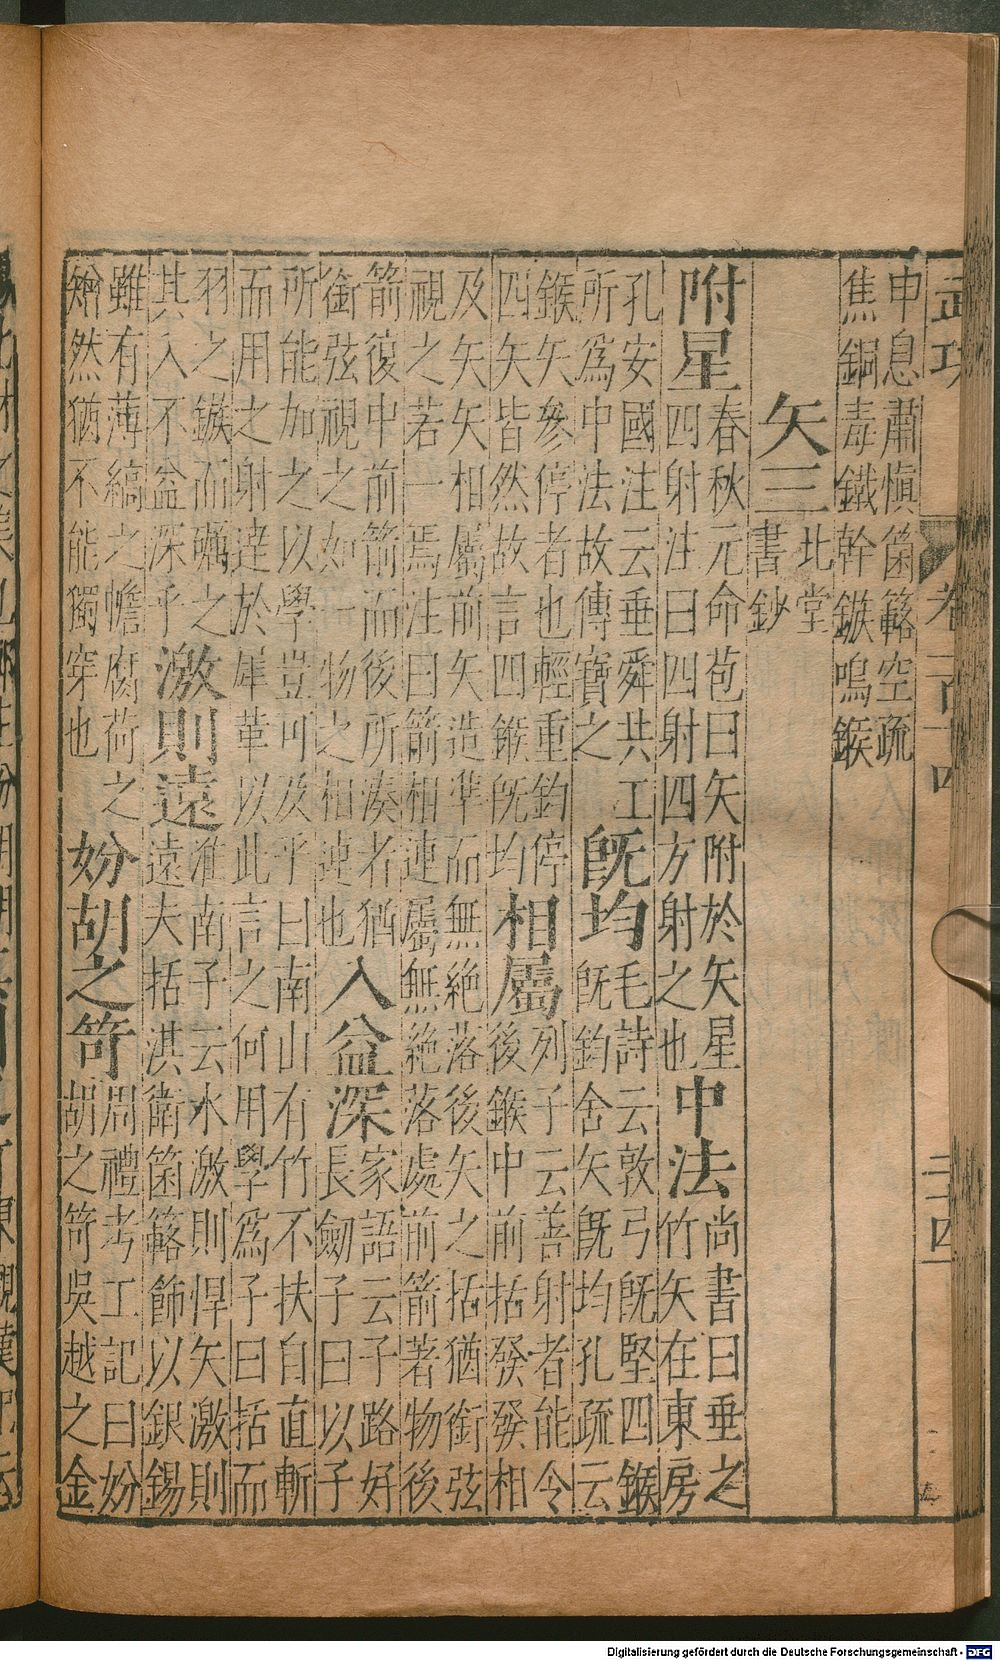 武功 卷二百十四 二十四
申息肅慎箘簵空疏
焦銅毒鐵幹鏃鳴鍭
矢三
北堂
書鈔
附星
春秋元命苞曰矢附於矢星
四射注曰四射四方射之也
中法
尚書曰垂之
竹矢在東房
孔安國注云垂舜共工
所為中法故傳寶之
既均
毛詩云敦弓既堅四鍭
既鈞舍矢既均孔疏云
鍭矢參停者也輕重鈞停
四矢皆然故言四鍭既均
相屬
列子云善射者能令
後鍭中前括發發相
及矢矢相屬前矢造準而無絶落後矢之括猶銜弦
視之若一焉注曰箭相連屬無絶落處前箭著物後
箭復中前箭而後所湊者猶
銜弦視之如一物之相連也
入益深
家語云子路好
長劒子曰以子
所能加之以學豈可及乎曰南山有竹不扶自直斬
而用之射達於犀革以此言之何用學為子曰括而
羽之鏃而礪之
其入不益深乎
激則遠
淮南子云水激則悍矢激則
遠夫括淇衛箘簵飾以銀錫
雖有薄縞之幨腐荷之
矰然猶不能獨穿也
妢胡之笴
周禮考工記曰妢
胡之笴吳越之金
Digitalisierung gefördert durch die Deutsche Forschungsgemeinschaft - DFG